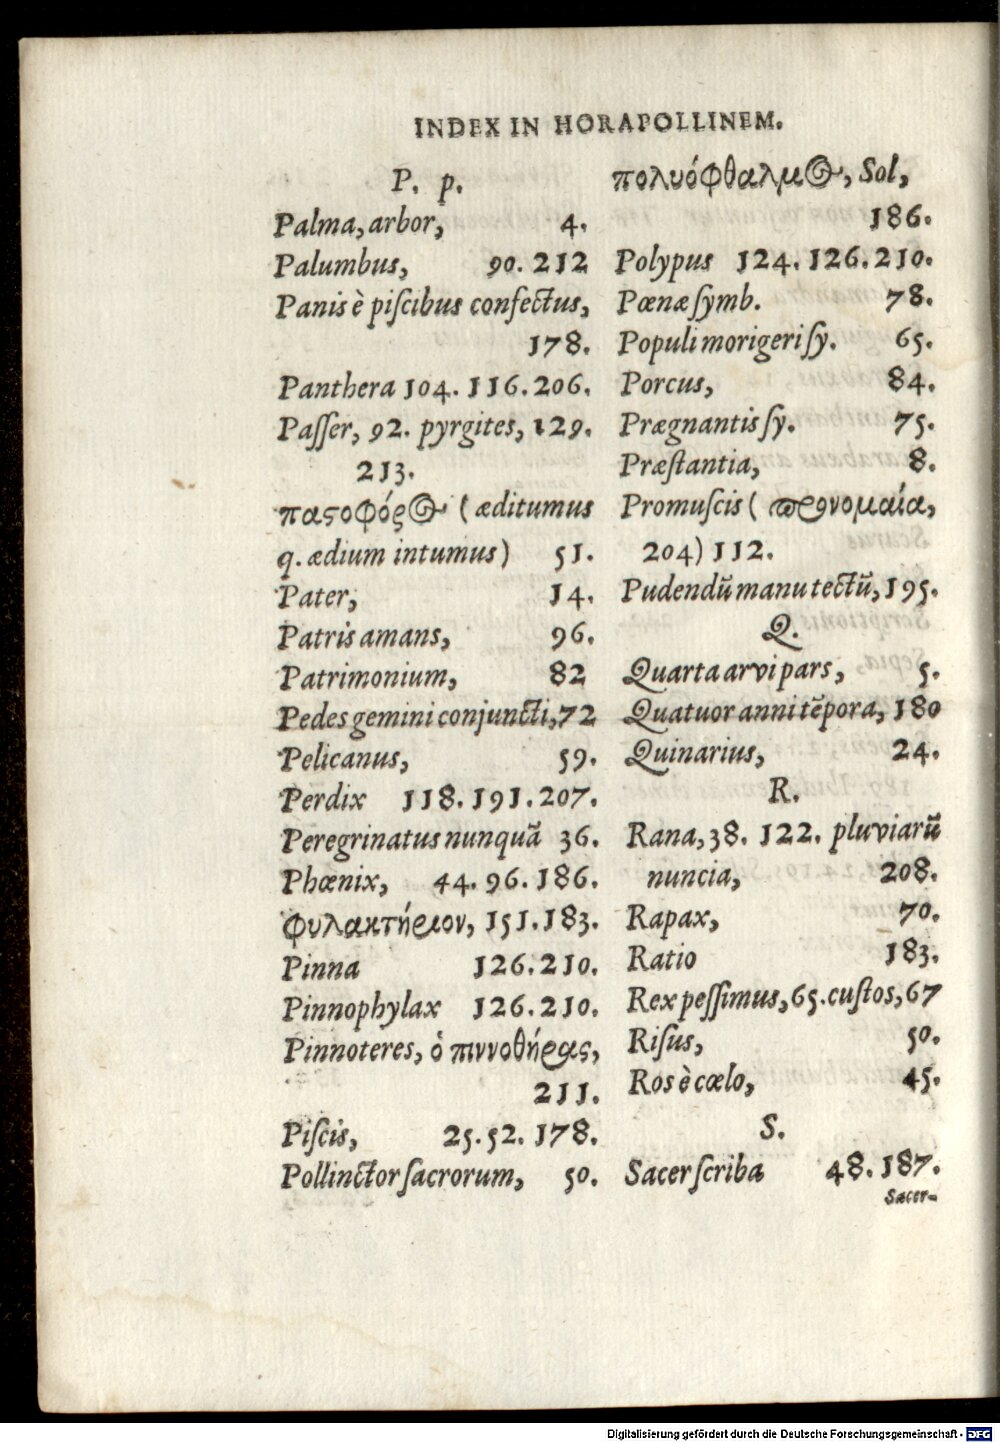 INDEX IN HORAPOLLINEM.
P. p.
Palma, arbor, 4.
Palumbus, 90. 212
Panis è piſcibus confectus,
178.
Panthera 104. 116. 206.
Paſſer, 92. pyrgites, 129.
213.
παϛοφόρος (æditumus
q. ædium intumus) 51.
Pater, 14.
Patris amans, 96.
Patrimonium, 82
Pedes gemini conjuncti, 72
Pelicanus, 59.
Perdix 118. 191. 207.
Peregrinatus nunquã 36.
Phœnix, 44. 96. 186.
φυλακτήριον, 151. 183.
Pinna 126. 210.
Pinnophylax 126. 210.
Pinnoteres, ὁ πιννοθήρας,
211.
Piſcis, 25. 52. 178.
Pollinctor ſacrorum, 50.
πολυόφθαλμος, Sol,
186.
Polypus 124. 126. 210.
Pœnæ ſymb. 78.
Populi morigeri ſy. 65.
Porcus, 84.
Prægnantis ſy. 75.
Præſtantia, 8.
Promuſcis (προνομαία,
204) 112.
Pudendũ manu tectũ, 195.
Q.
Quarta arvi pars, 5.
Quatuor anni tẽpora, 180
Quinarius, 24.
R.
Rana, 38. 122. pluviarũ
nuncia, 208.
Rapax, 70.
Ratio 183.
Rex peſſimus, 65. cuſtos, 67
Riſus, 50.
Ros è cœlo, 45.
S.
Sacer ſcriba 48. 187.
Sacer-
Digitalisierung gefördert durch die Deutsche Forschungsgemeinschaft - DFG